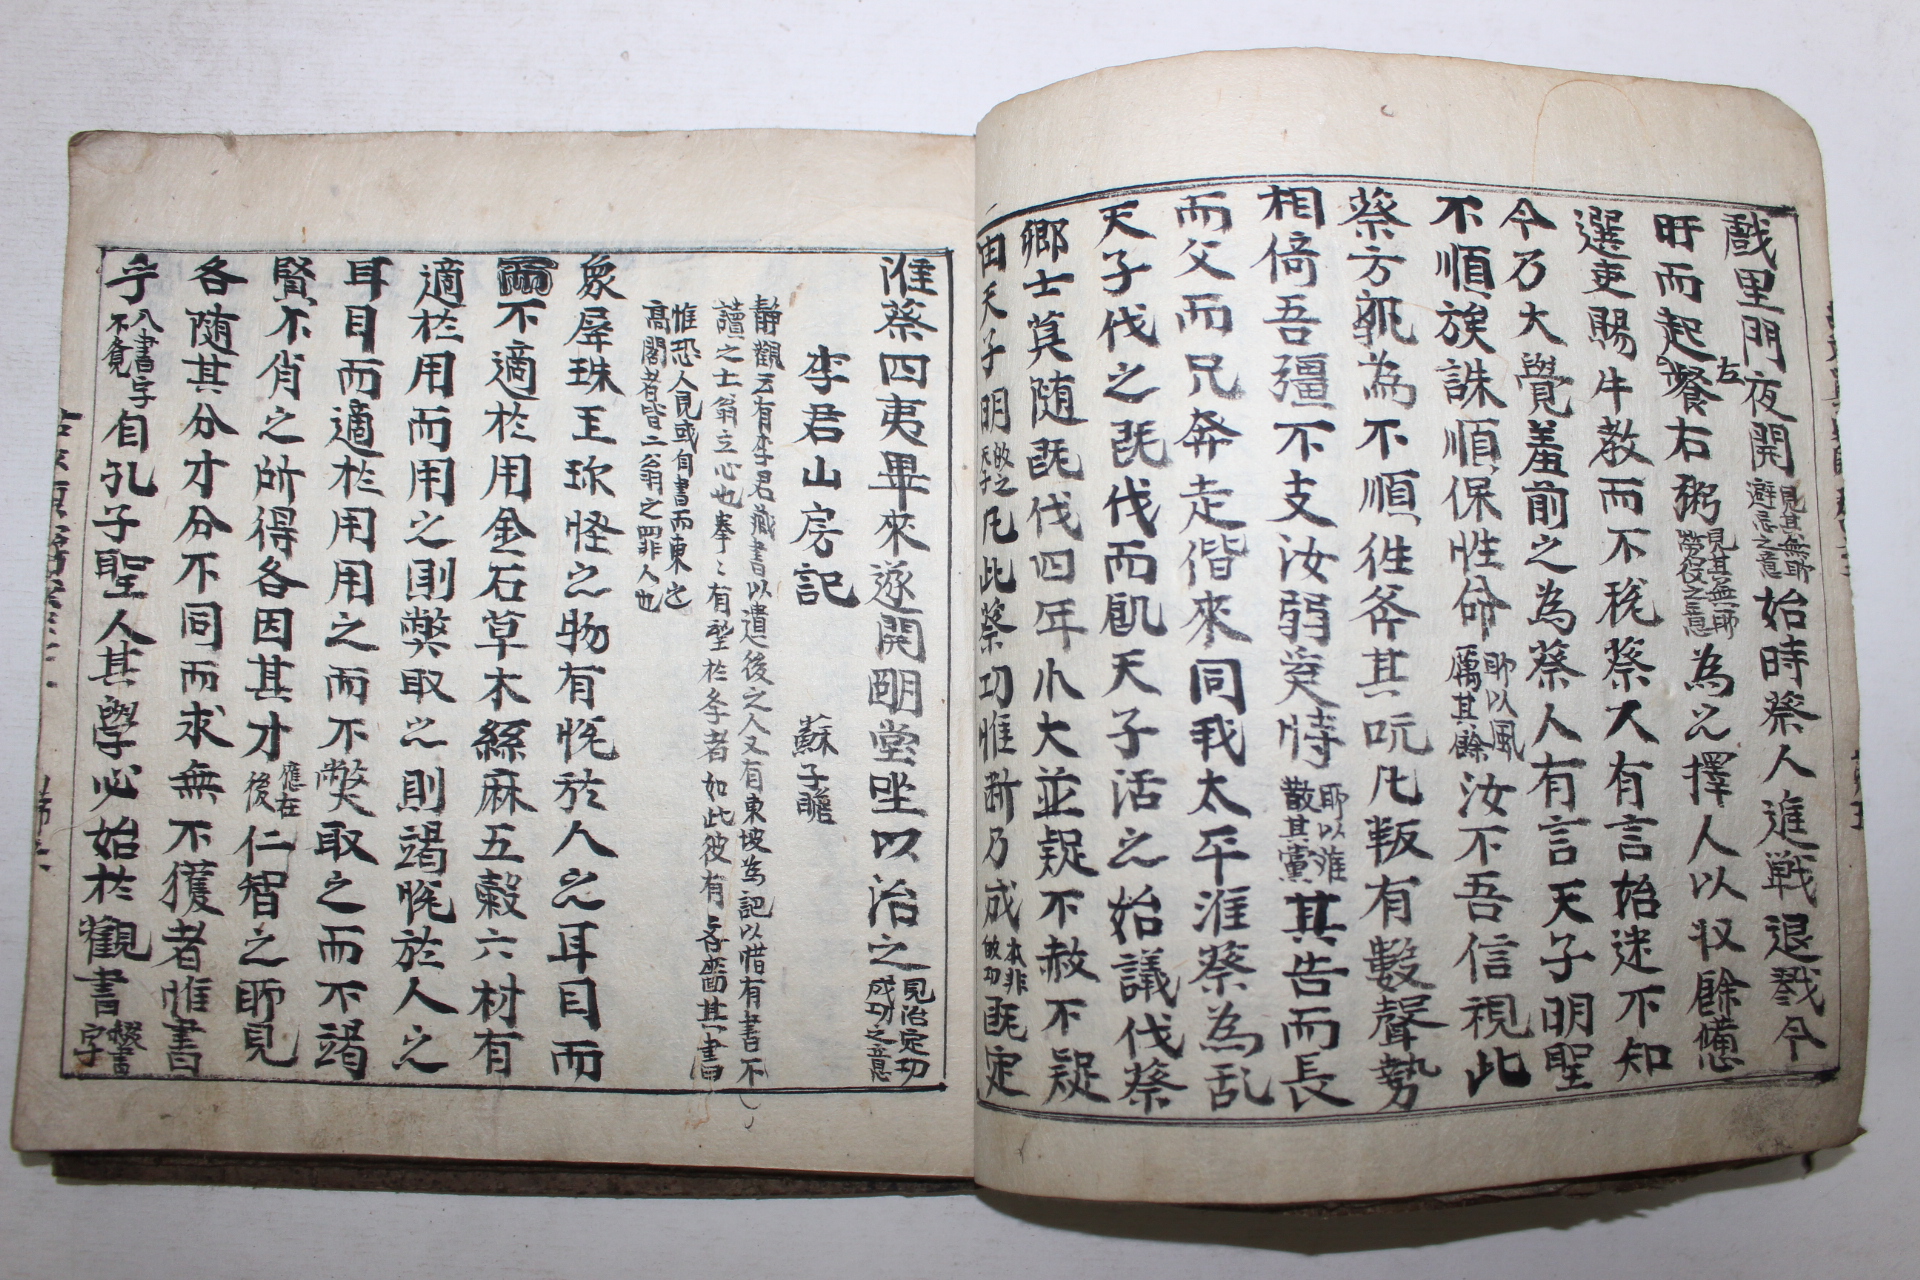 戲里門夜開見其無耶避忌之意始時蔡人進戰退戮今
旰而起左餐右粥見其無耶勞役之意為之擇人以収餘憊
選吏賜牛教而不稅蔡人有言始迷不知
今乃大覺羞前之為蔡人有言天子明聖
不順族誅順保性命耶以風厲其餘汝不吾信視此
蔡方孰為不順徃斧其吭凡叛有數聲勢
相倚吾彊不支汝弱奚恃耶以淮散其黨其告而長
而父而兄奔走偕來同我太平淮蔡為乱
天子伐之既伐而飢天子活之始議伐蔡
卿士莫隨既伐四年小大並疑不赦不疑
由天子明故之天子凡此蔡功惟断乃成本非做功既定
淮蔡四夷畢來遂開明堂坐以治之見治定功成功之意
李君山房記 蘇子瞻
静觀云有李君藏書以遺後之人又有東坡為記以惜有書不
讀之士翁立心也拳〻有望於李者如此彼有其書
惟恐人見或自書而東之
高閣者皆二翁之罪人也
象犀珠玉珎怪之物有悅於人之耳目而
不適於用金石草木絲麻五穀六材有
適於用而用之則獘取之則竭悅於人之
耳目而適於用用之而不獘取之而不竭
賢不肖之所得各因其才應在後仁智之耶見
各随其分才分不同而求無不獲者惟書
乎八書字不覺自孔子聖人其學必始於觀書綴書字